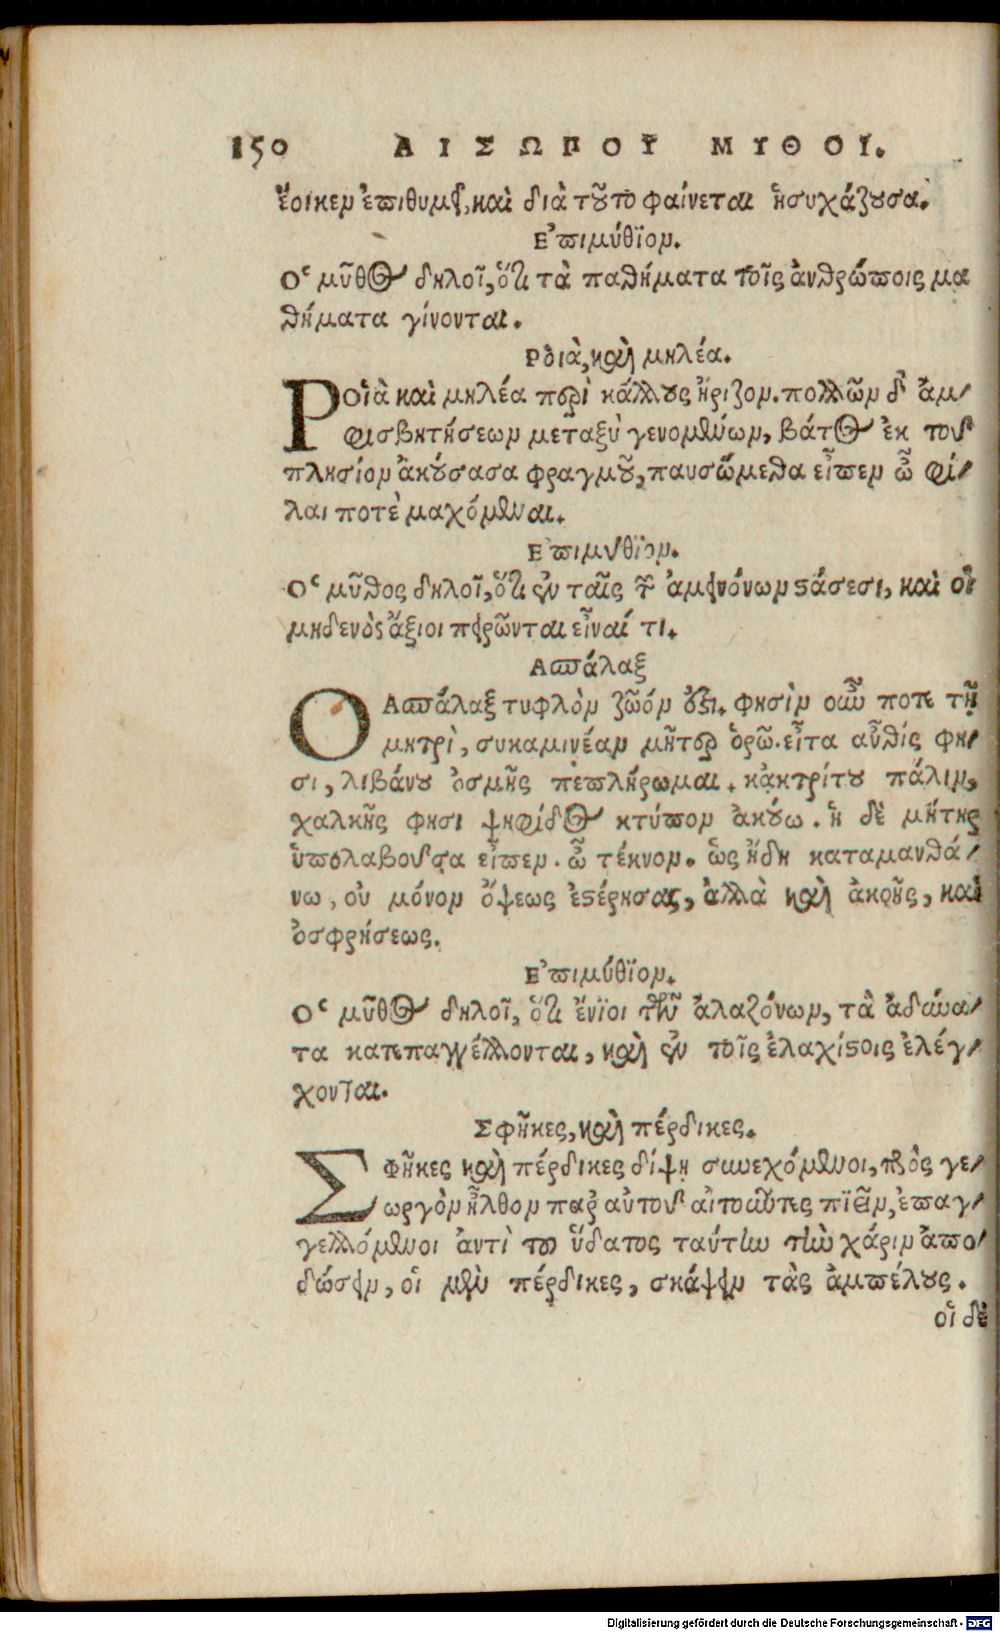 150 ΑΙΣΩΠΟΥ ΜΥΘΟΙ.
ἔοικεν ἐπιθυμεῖ, καὶ διὰ τοῦτο φαίνεται ἡσυχάζουσα.
Ἐπιμύθϊον.
Ὁ μῦθος δηλοῖ, ὅτι τὰ παθήματα τοῖς ἀνθρώποις μα
θήματα γίνονται.
Ροιὰ, καὶ μηλέα.
Ροιὰ καὶ μηλέα περὶ κάλλους ἤριζον. πολλῶν δ' ἀμ-
φισβητήσεων μεταξὺ γενομένων, βάτος ἐκ τοῦ
πλησίον ἀκούσασα φραγμοῦ, παυσώμεθα εἶπεν ὦ φί-
λαι ποτὲ μαχόμεναι.
Ἐπιμύθϊον.
Ὁ μῦθος δηλοῖ, ὅτι ἐν ταῖς τῶν ἀμεινόνων στάσεσι, καὶ οἱ
μηδενὸς ἄξιοι πειρῶνται εἶναί τι.
Ἀσπάλαξ
Ὁ Ἀσπάλαξ τυφλὸν ζῶόν ἐστι. φησὶν οὖν ποτε τῇ
μητρὶ, συκαμινέαν μῆτερ ὁρῶ. εἶτα αὖθίς φη-
σι, λιβάνου ὀσμῆς πεπλήρωμαι. κἀκτρίτου πάλιν,
χαλκῆς φησι ψηφίδος κτύπον ἀκούω. ἡ δὲ μήτηρ
ὑπολαβοῦσα εἶπεν. ὦ τέκνον. ὡς ἤδη καταμανθά-
νω, οὐ μόνον ὄψεως ἐστέρησας, ἀλλὰ καὶ ἀκοῆς, καὶ
ὀσφρήσεως.
Ἐπιμύθϊον.
Ὁ μῦθος δηλοῖ, ὅτι ἔνϊοι τῶν ἀλαζόνων, τὰ ἀδύνα-
τα κατεπαγγέλλονται, καὶ ἐν τοῖς ἐλαχίστοις ἐλέγ-
χονται.
Σφῆκες, καὶ πέρδικες.
Σφῆκες καὶ πέρδικες δίψῃ συνεχόμενοι, πρὸς γε-
ωργὸν ἦλθον παρ' αὐτοῦ αἰτοῦντες πϊεῖν, ἐπαγ-
γελλόμενοι ἀντὶ τοῦ ὕδατος ταύτην τὴν χάριν ἀπο-
δώσειν, οἱ μὲν πέρδικες, σκάψειν τὰς ἀμπέλους.
οἱ δὲ
Digitalisierung gefördert durch die Deutsche Forschungsgemeinschaft - DFG